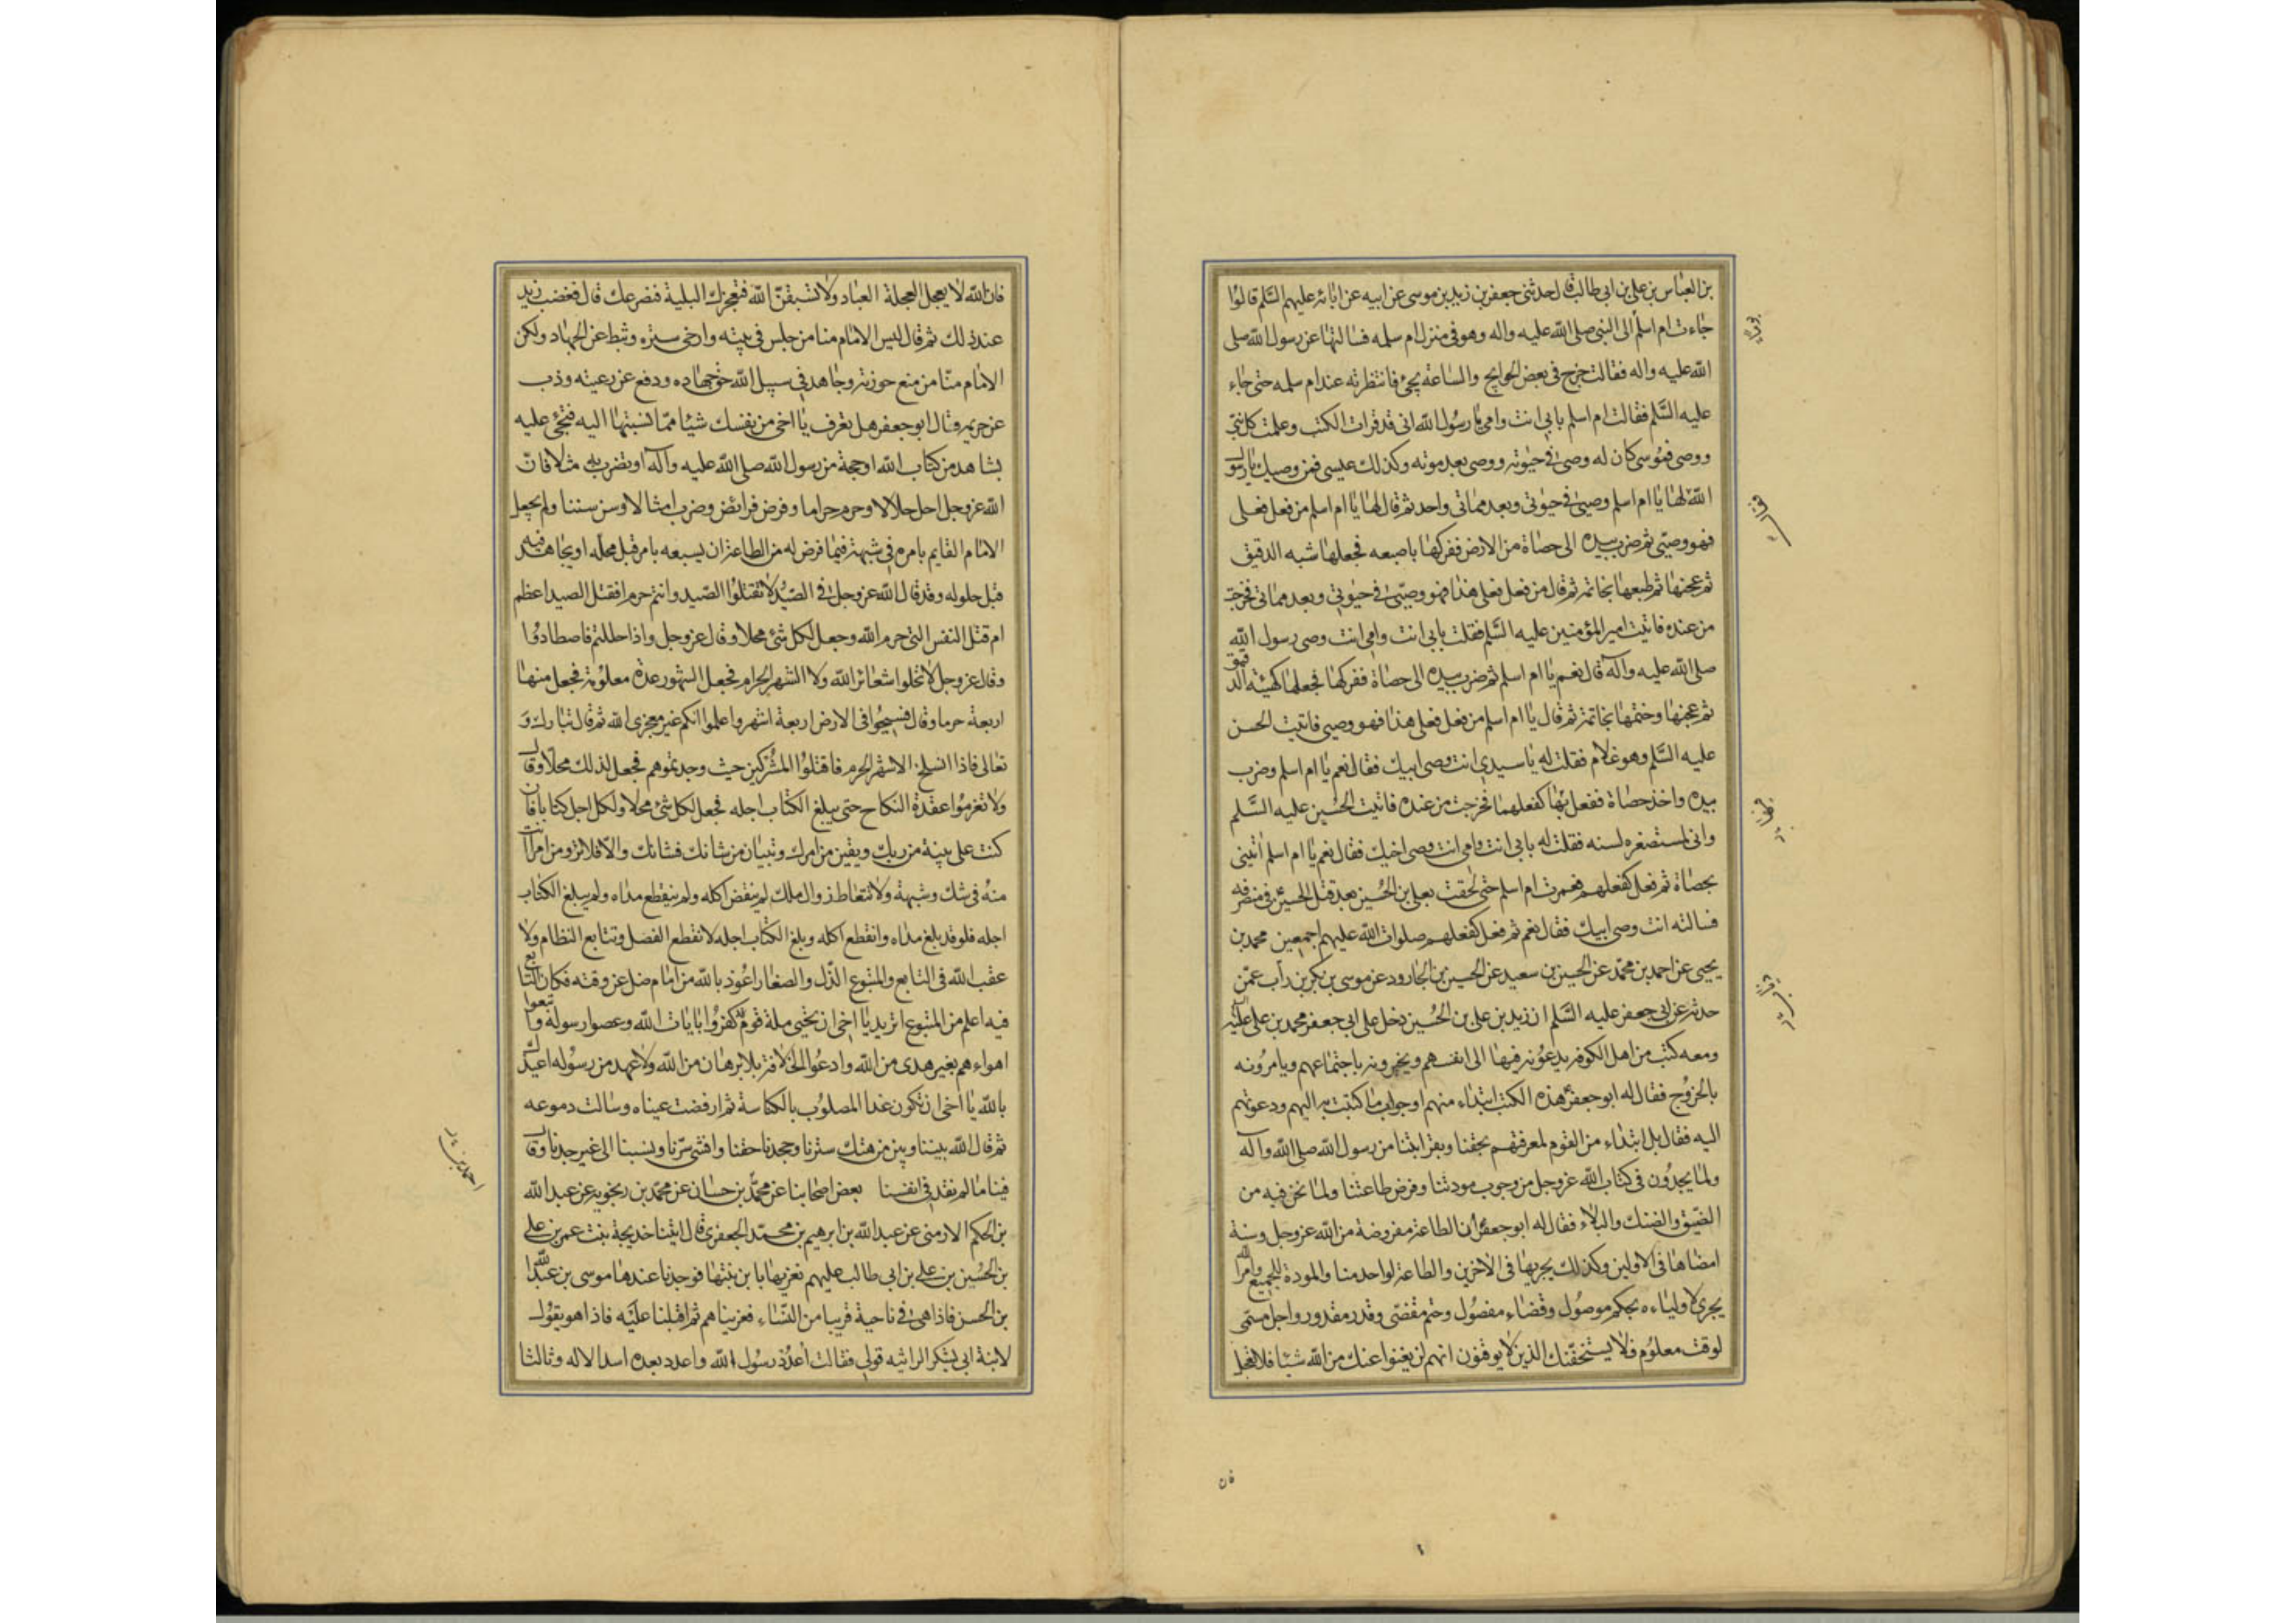 بن العباس بن علي بن ابي طالب قال حدثني جعفر بن زيد بن موسى عن ابيه عن ابائه عليهم السلم قالوا
جاءت ام اسلم الى النبي صلى الله عليه واله وهو في منزل ام سلمه فسالتها عن رسول الله صلى
الله عليه واله فقالت خرج في بعض الحوايج والساعة يجئ فانتظرته عند ام سلمه حتى جاء
عليه السلم فقالت ام اسلم بابي انت وامي يا رسول الله اني قد قرات الكتب وعلمت كل نبي
ووصي فموسى كان له وصي في حيوته ووصي بعد موته وكذلك عيسى فمن وصيك يا رسول
الله لها يا ام اسلم وصيي في حيوتي وبعد مماتي واحد ثم قال لها يا ام اسلم من فعل فعلي
فهو وصيي ثم ضرب بيده الى حصاة من الارض ففركها باصبعه فجعلها شبه الدقيق
ثم عجنها ثم طبعها بخاتمه ثم قال من فعل فعلي هذا فهو وصيي في حيوتي وبعد مماتي فخرجت
من عنده فاتيت امير المؤمنين عليه السلم فقلت بابي انت وامي انت وصي رسول الله
صلى الله عليه وآله قال نعم يا ام اسلم ثم ضرب بيده الى حصاة ففركها فجعلها كهيئة الدقيق
ثم عجنها وختمها بخاتمه ثم قال يا ام اسلم من فعل فعلي هذا فهو وصيي فاتيت الحسن
عليه السلم وهو غلام فقلت له يا سيدي انت وصي ابيك فقال نعم يا ام اسلم وضرب
بيده واخذ حصاة ففعل بها كفعلهما فخرجت من عنده فاتيت الحسين عليه السلم
واني لمستصغره لسنه فقلت له بابي انت وامي انت وصي اخيك فقال نعم يا ام اسلم ائتيني
بحصاة ثم فعل كفعلهم فعمرت ام اسلم حتى لحقت بعلي بن الحسين بعد قتل الحسين في منصرفه
فسالته انت وصي ابيك فقال نعم ثم فعل كفعلهم صلوات الله عليهم اجمعين محمد بن
يحيى عن احمد بن محمد عن الحسين بن سعيد عن الحسين بن الجارود عن موسى بن بكر بن داب عمن
حدثه عن ابي جعفر عليه السلم ان زيد بن علي بن الحسين دخل على ابي جعفر محمد بن علي عليه
ومعه كتب من اهل الكوفه يدعونه فيها الى انفسهم ويخبرونه باجتماعهم ويامرونه
بالخروج فقال له ابو جعفر هذه الكتب ابتداء منهم او جواب ما كتبت به اليهم ودعوتهم
اليه فقال بل ابتداء من القوم لمعرفتهم بحقنا وبقرابتنا من رسول الله صلى الله وآله
ولما يجدون في كتاب الله عز وجل من وجوب مودتنا وفرض طاعتنا ولما نحن فيه من
الضيق والضنك والبلاء فقال له ابو جعفر ان الطاعة مفروضة من الله عز وجل وسنة
امضاها في الاولين وكذلك يجريها في الاخرين والطاعة لواحد منا والمودة للجميع وامر الله
يجري لاولياءه بحكم موصول وقضاء مفصول وحتم مقضي وقدر مقدور واجل مسمى
لوقت معلوم فلا يستخفنك الذين لا يوقنون انهم لن يغنوا عنك من الله شيئا فلا تعجل
فان
فان الله لا يعجل لعجلة العباد ولا تسبقن الله فتعجزك البلية فتصرعك قال فغضب زيد
عند ذلك ثم قال ليس الامام منا من جلس في بيته وارخى ستره وثبط عن الجهاد ولكن
الامام منا من منع حوزته وجاهد في سبيل الله حق جهاده ودفع عن رعيته وذب
عن حريمه وقال ابو جعفر هل تعرف يا اخي من نفسك شيئا مما نسبتها اليه فتجئ عليه
بشاهد من كتاب الله او حجة من رسول الله صلى الله عليه وآله او تضرب به مثلا فان
الله عز وجل احل حلالا وحرم حراما وفرض فرائض وضرب امثالا وسن سننا ولم يجعل
الامام القايم بامره في شبهة فيما فرض له من الطاعة ان يسبقه بامر قبل محله او يجاهد فيه
قبل حلوله وقد قال الله عز وجل في الصيد لا تقتلوا الصيد وانتم حرم افقتل الصيد اعظم
ام قتل النفس التي حرم الله وجعل لكل شئ محلا وقال عز وجل واذا حللتم فاصطادوا
وقال عز وجل لا تحلوا شعائر الله ولا الشهر الحرام فجعل الشهور عدة معلومة فجعل منها
اربعة حرما وقال فسيحوا في الارض اربعة اشهر واعلموا انكم غير معجزي الله ثم قال تبارك و
تعالى فاذا انسلخ الاشهر الحرم فاقتلوا المشركين حيث وجدتموهم فجعل لذلك محلا وقال
ولا تعزموا عقدة النكاح حتى يبلغ الكتاب اجله فجعل لكل شئ محلا ولكل اجل كتابا فان
كنت على بينة من ربك ويقين من امرك وتبيان من شانك فشانك والا فلا ترومن امرا انت
منه في شك وشبهة ولا تتعاط زوال ملك لم ينقض اكله ولم ينقطع مداه ولم يبلغ الكتاب
اجله فلو قد بلغ مداه وانقطع اكله وبلغ الكتاب اجله لانقطع الفصل وتتابع النظام ولا
عقب الله في التابع والمتبوع الذل والصغار اعوذ بالله من امام ضل عن وقته فكان التابع
فيه اعلم من المتبوع اتريد يا اخي ان تحيي ملة قوم قد كفروا بايات الله وعصوا رسوله واتبعوا
اهواءهم بغير هدى من الله وادعوا الخلافة بلا برهان من الله ولا عهد من رسوله اعيذك
بالله يا اخي ان تكون غدا المصلوب بالكناسة ثم ارفضت عيناه وسالت دموعه
ثم قال الله بيننا وبين من هتك سترنا وجحدنا حقنا وافشى سرنا ونسبنا الى غير جدنا وقال
فينا ما لم نقله في انفسنا بعض اصحابنا عن محمد بن حسان عن محمد بن رنجويه عن عبد الله
بن الحكم الارمني عن عبد الله بن ابرهيم بن محمد الجعفري قال اتينا خديجة بنت عمر بن علي
بن الحسين بن علي بن ابي طالب عليهم نعزيها بابن بنتها فوجدنا عندها موسى بن عبد الله
بن الحسن فاذا هي في ناحية قريبا من النساء فعزيناهم ثم اقبلنا عليه فاذا هو يقول
لابنة ابي يشكر الراثيه قولي فقالت اعدد رسول الله واعدد بعده اسد الاله وثالثا